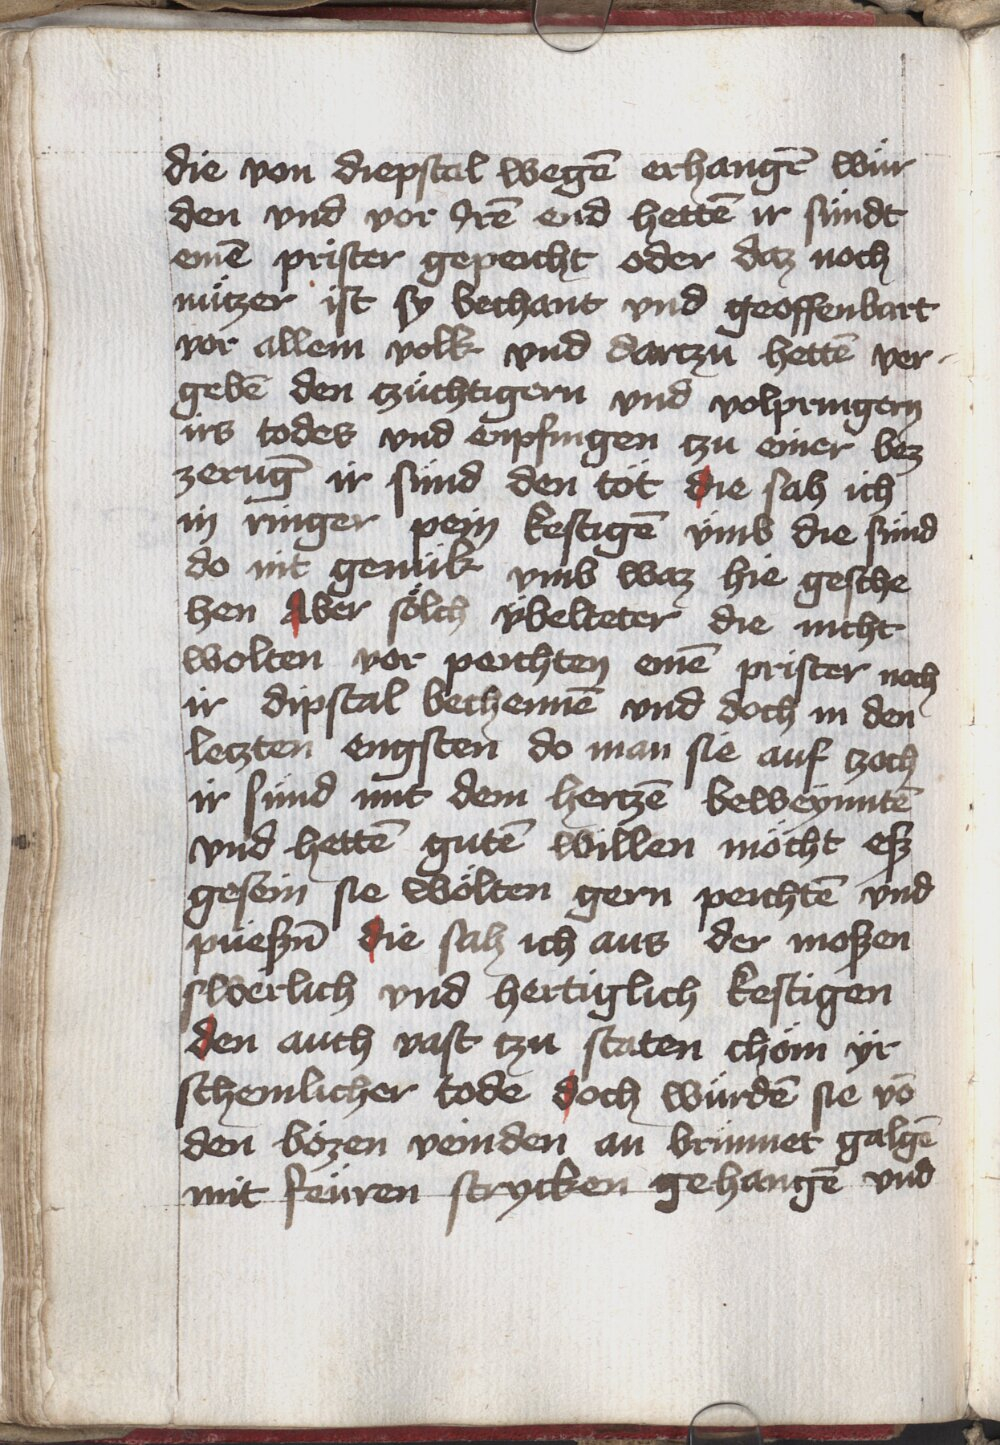 die von diepstal wegē erhangē wür
den vnd vor Jrē end hettē ir sündt
einē prister gepeicht oder daz noch
nützer ist sy bechant vnd geoffenbart
vor allem volk vnd dartzu hettē ver-
gebē den tzüchtigern vnd volpringern
irs todes vnd enpfingen tzu einer bez
zerūg ir sünd den töt die sah ich
in ringer pein kestigē ümb die sünd
do nit genük vmb waz hie gesche
hen Aber sölch übelteter die nicht
wolten vor peichten einē prister noch
ir dipstal bechennē vnd doch in den
letzten engsten do man sie auf tzoch
ir sünd mit dem hertzē beweÿnntē
vnd hettē gutē willen möcht eß
gesein sie wölten gern peichtē vnd
püeßn̄ die sah ich aus der moßen
swerlich vnd hertiglich kestigen
den auch vast tzu staten chöm ÿr
schemlicher tode doch würdē sie vō
den bözen veinden an brinnet galgē
mit feüren strycken gehangē vnd